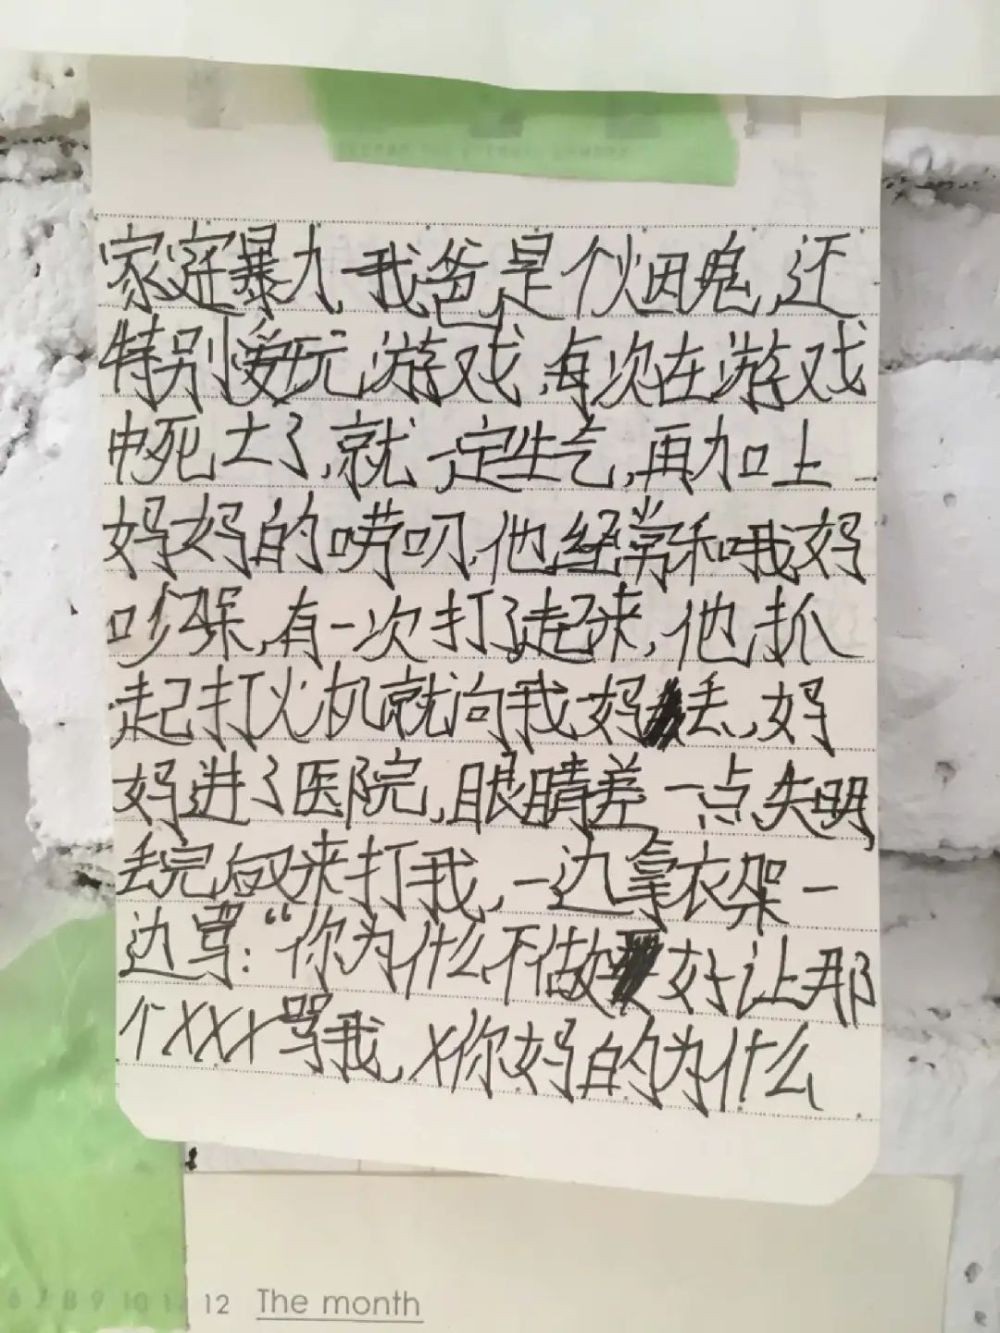 家庭暴力,我爸是个烟鬼,还
特别爱玩游戏,每次在游戏
中死去了,就一定生气,再加上
妈妈的唠叨,他经常和我妈
吵架,有一次打了起来,他抓
起打火机就向我妈丢,妈
妈进了医院,眼睛差一点失明
丢完向又来打我,一边拿衣架一
边骂:“你为什么不做好让那
个XXX骂我,X你妈的为什么
12 The month